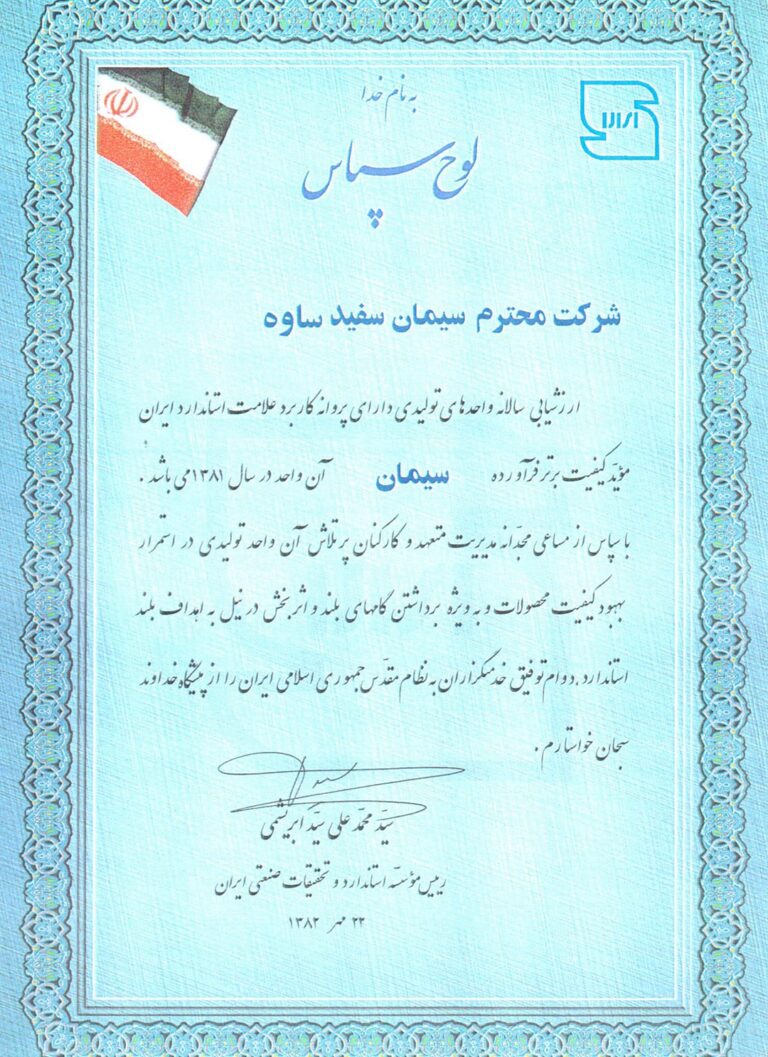 به نام خدا
ایران
لوح سپاس
شرکت محترم سیمان سفید ساوه
ارزشیابی سالانه واحدهای تولیدی دارای پروانه کاربرد علامت استاندارد ایران
مؤیّد کیفیت برتر فرآورده سیمان آن واحد در سال ۱۳۸۱ می باشد .
با سپاس از مساعی مجدّانه مدیریت متعهد و کارکنان پرتلاش آن واحد تولیدی در استمرار
بهبود کیفیت محصولات و به ویژه برداشتن گامهای بلند و اثربخش در نیل به اهداف بلند
استاندارد، دوام توفیق خدمتگزاران به نظام مقدّس جمهوری اسلامی ایران را از پیشگاه خداوند
سبحان خواستارم .
سیّد محمّد علی سیّد ابریشمی
رییس مؤسسّه استاندارد و تحقیقات صنعتی ایران
۲۲ مهر ۱۳۸۲